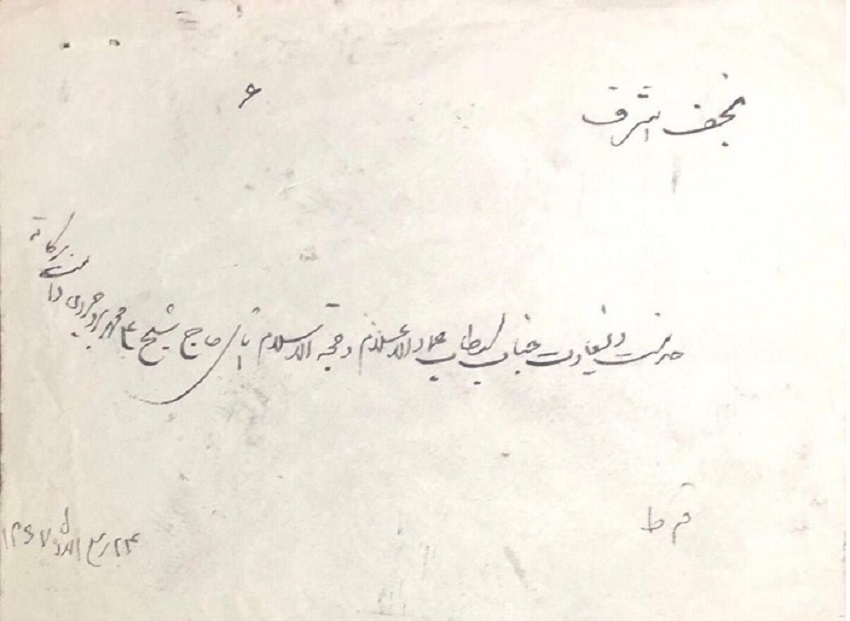 نجف اشرف
۶
خدمت ذیسعادت جناب مستطاب عماد الاعلام و حجة الاسلام آقای حاج شیخ محمد بروجردی دامت برکاته
۲۴ ربیع الاول ۱۳۶۷